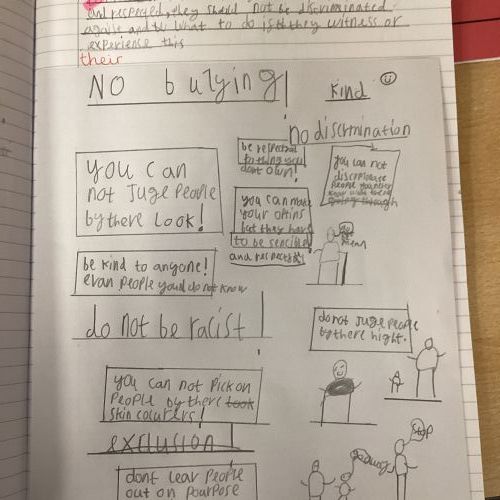 and respected, they should not be discriminated
against and to what to do if they witness or
experience this
their
NO bulying!
Kind
no discrimination
be respectful
to thing you
dont own!
you can not
discriminate
People you never
know what there
going through
you can
not Juge People
by there Look!
you can make
your optins
but they have
to be sencible
and respectful
be kind to anyone!
evan people you do not know
do not be racist!
do not Juge People
by there hight.
you can not Pick on
People by there took
skin colurers!
exclusion!
dont lear People
out on pourpose
Stop